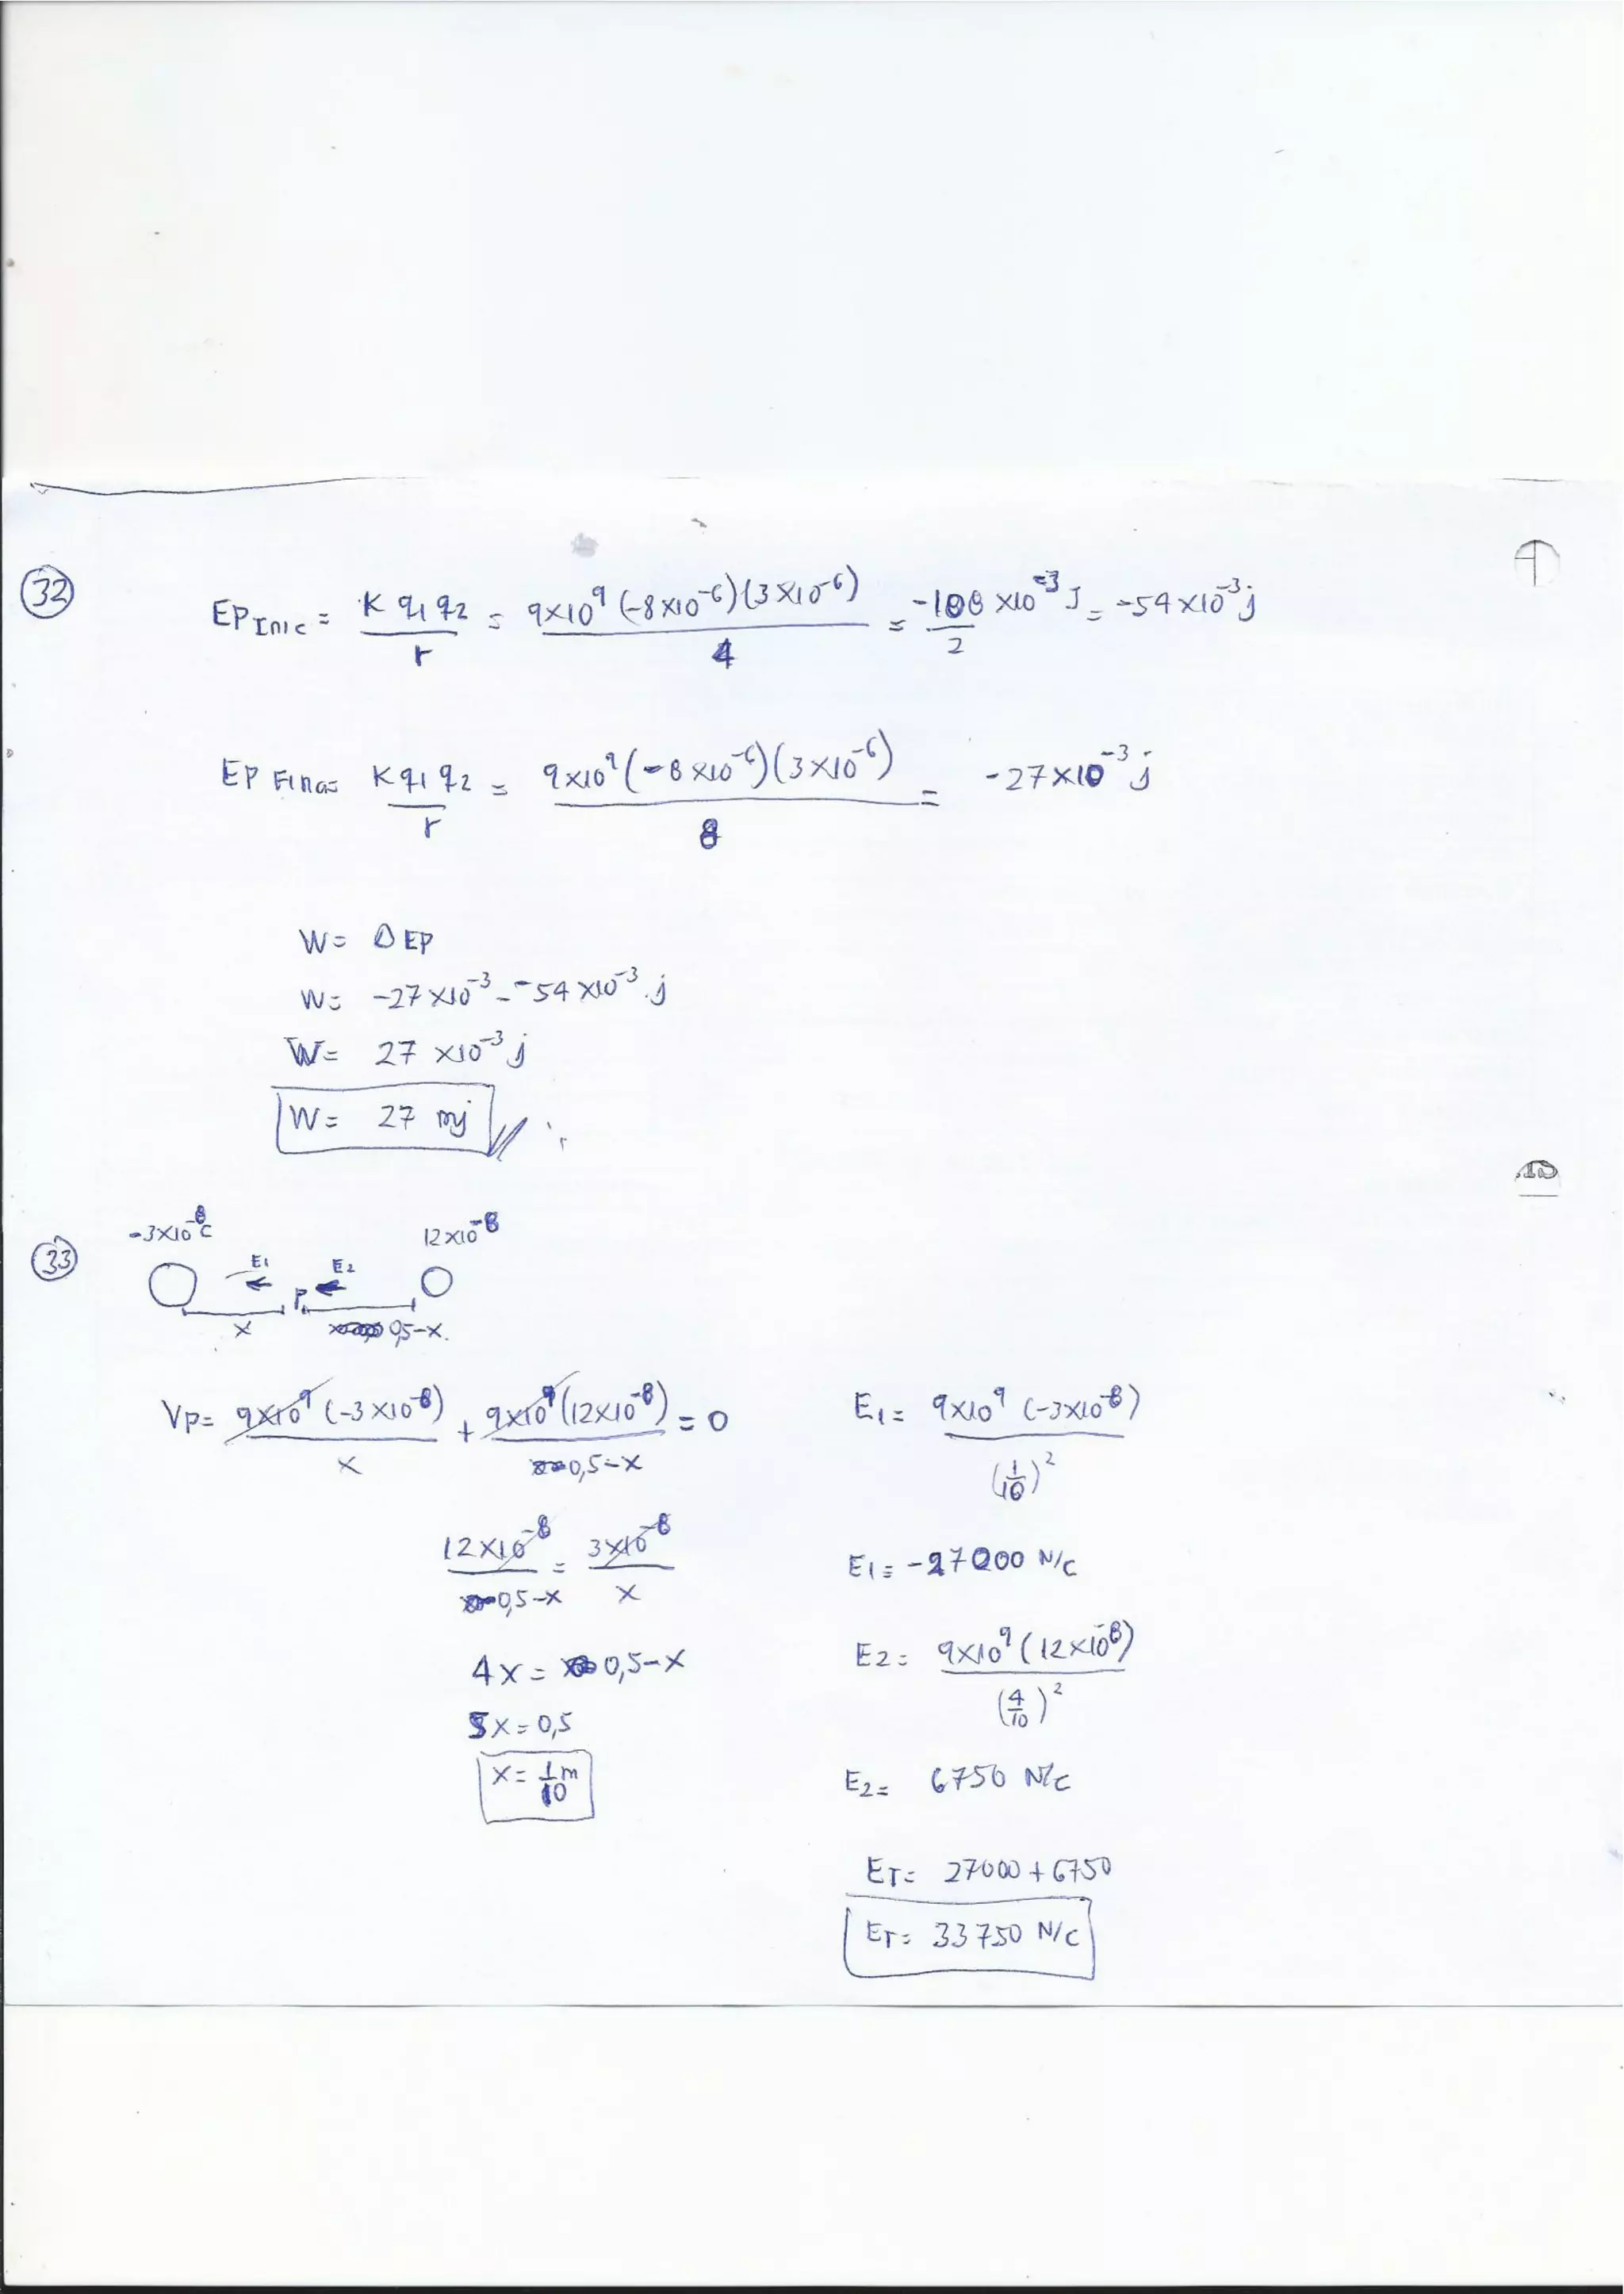 32
EP Inic = K q1 q2 / r = 9x10^9 (-8x10^-6)(3x10^-6) / 4 = -108 x10^-3 J / 2 = -54x10^-3 j
EP Fina= K q1 q2 / r = 9x10^9 (-8x10^-6)(3x10^-6) / 8 = -27x10^-3 j
W= Δ EP
W= -27x10^-3 - -54x10^-3 . j
W= 27 x10^-3 j
W= 27 mj
33
-3x10^-8 C 12x10^-8
E1 E2
P
x 0,5-x.
Vp= 9x10^9 (-3x10^-8) / x + 9x10^9 (12x10^-8) / 0,5-x = 0
12x10^-8 / 0,5-x = 3x10^-8 / x
4x = 0,5-x
5x = 0,5
x = 1/10 m
E1= 9x10^9 (-3x10^-8) / (1/10)^2
E1= -27000 N/C
E2= 9x10^9 (12x10^-8) / (4/10)^2
E2= 6750 N/C
ET= 27000+6750
ET= 33750 N/C